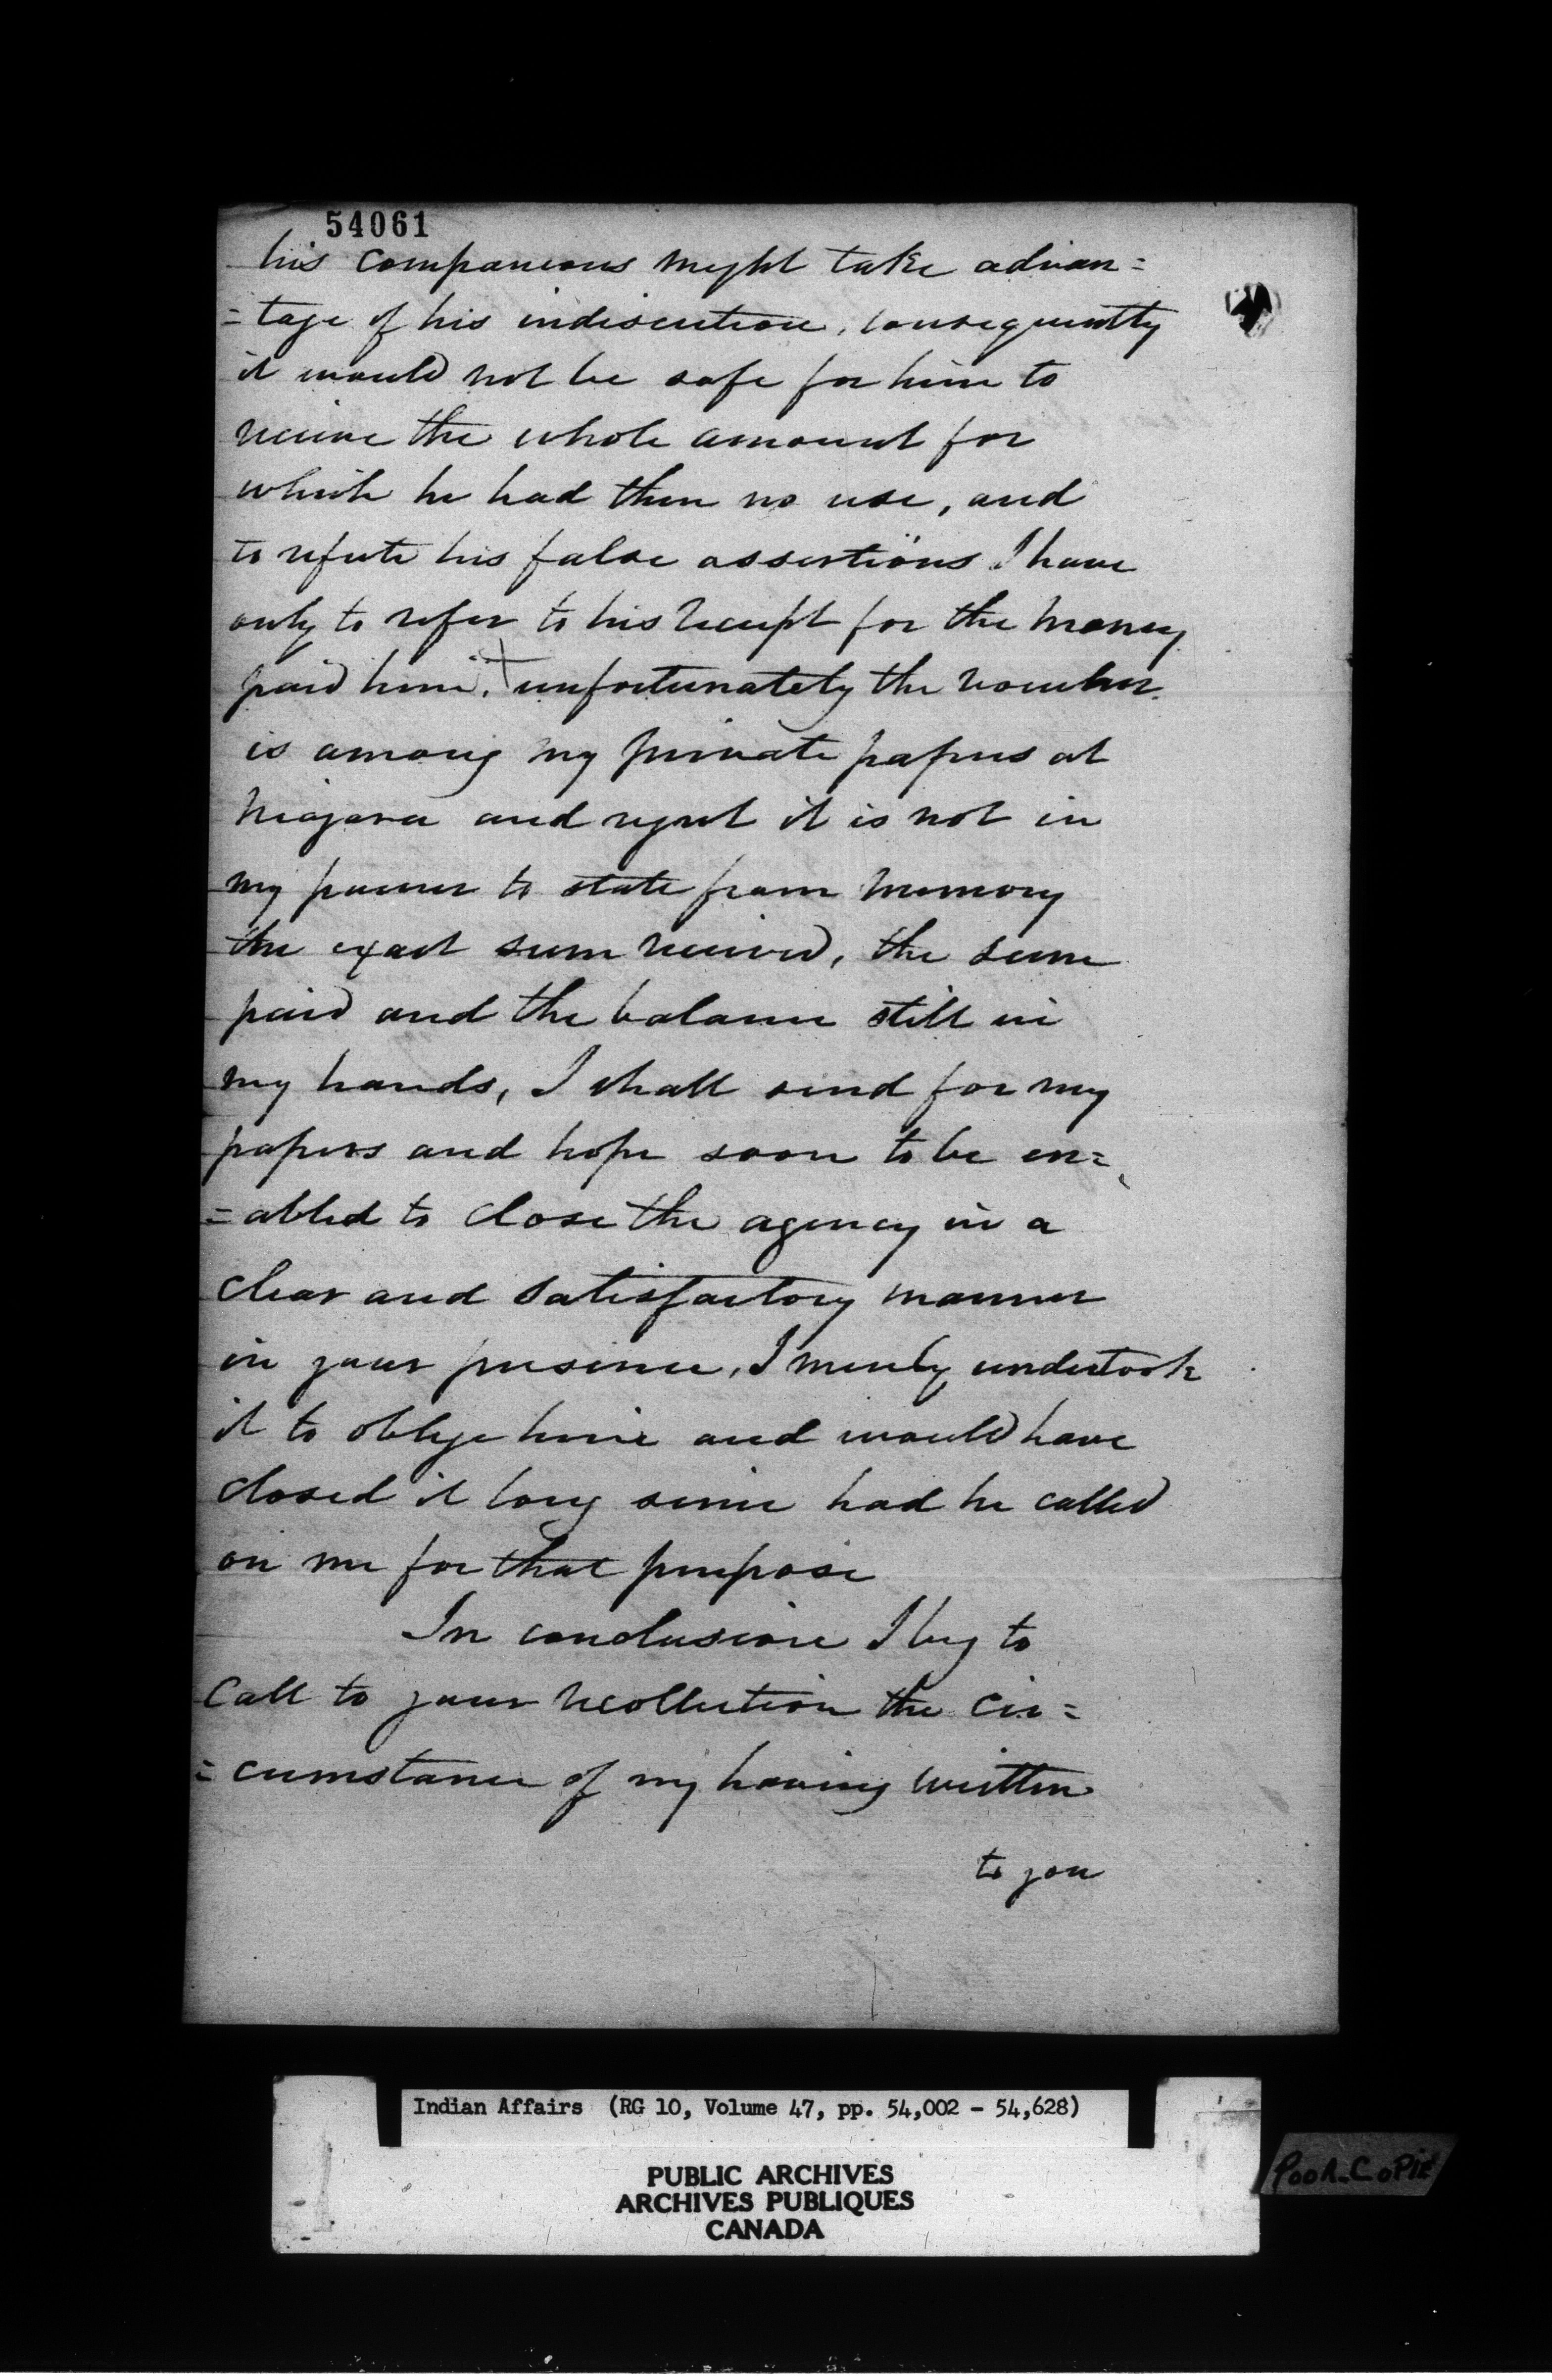 54061
his companions might take advan=
=tage of his indiscretion, consequently
it would not be safe for him to
receive the whole amount for
which he had then no use, and
to refute his false assertions I have
only to refer to his receipt for the money
paid him. + unfortunately the voucher
is among my private papers at
Niagara and regret it is not in
my power to state from memory
the exact sum received, the sum
paid and the balance still in
my hands, I shall send for my
papers and hope soon to be en=
=abled to close the agency in a
clear and satisfactory manner
in your presence, I merely undertook
it to oblige him and would have
closed it long since had he called
on me for that purpose
In conclusion I beg to
call to your recollection the cir=
=cumstance of my having written
to you
Indian Affairs (RG 10, Volume 47, pp. 54,002 - 54,628)
PUBLIC ARCHIVES
ARCHIVES PUBLIQUES
CANADA
POOR COPIE